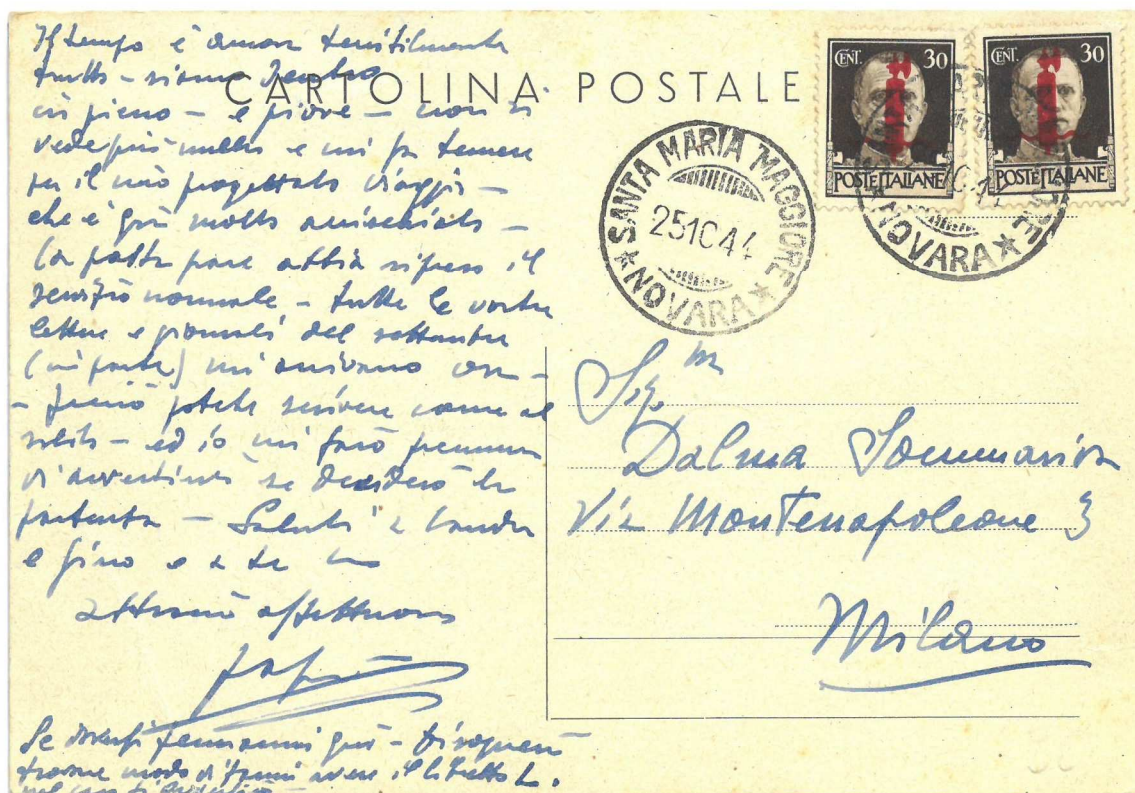 Il tempo è ancora terribilmente
brutto - siamo dentro
in pieno - e piove - non si
vede più nulla e mi fa temere
per il mio progettato viaggio -
che è già molto
La posta pare abbia ripreso il
servizio normale - tutte le vostre
lettere e giornali del settembre
(in parte) mi arrivano ora -
- perciò potete scrivere come al
solito - ed io mi farò premura
di avvertirvi se deciderò la
partenza - Saluti a
e Gino e a te un
affettuoso
Se dovessi fermarmi qui - bisognerà
trovare modo di farmi avere il libretto
CARTOLINA POSTALE
CENT. 30
POSTE ITALIANE
CENT. 30
POSTE ITALIANE
SANTA MARIA MAGGIORE
25 10 44
* NOVARA *
NOVARA *
Sig.ra
Dalma Sommariva
Via Montenapoleone 3
Milano